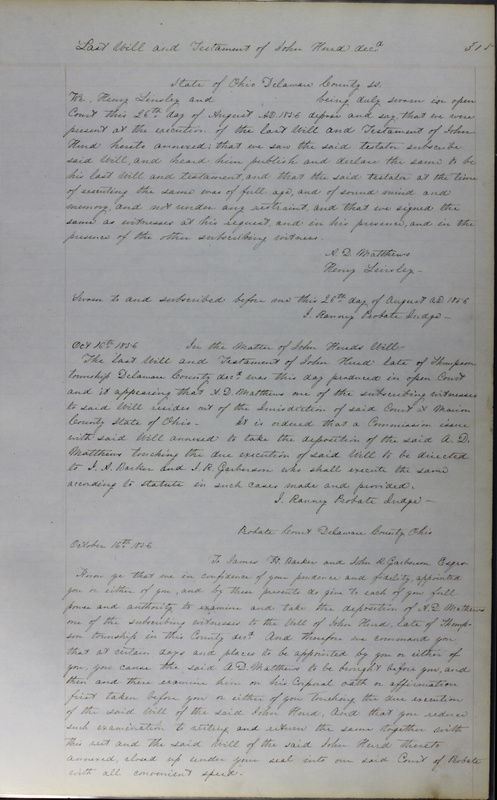 Last Will and Testament of John Hurd decd
State of Ohio Delaware County ss.
We, Henry Linsley and being duly sworn in open
Court this 26th day of August AD. 1856 depose and say, that we were
present at the execution of the last Will and Testament of John
Hurd hereto annexed, that we saw the said testator subscribe
said Will, and heard him publish and declare the same to be
his last Will and testament, and that the said testator at the time
of executing the same was of full age, and of sound mind and
memory, and not under any restraint, and that we signed the
same as witnesses at his request, and in his presence, and in the
presence of the other subscribing witness.
A. D. Matthews
Henry Linsley
Sworn to and subscribed before me this 26th day of August AD. 1856
J. Ranney Probate Judge
Oct 16th 1856 In the Matter of John Hurds Will
The last Will and Testament of John Hurd late of Thompson
township Delaware County decd was this day produced in open Court
and it appearing that A. D. Matthews one of the subscribing witnesses
to said Will resides out of the Jurisdiction of said Court & Marion
County State of Ohio - It is ordered that a Commission issue
with said Will annexed to take the deposition of the said A. D.
Matthews touching the due execution of said Will to be directed
to J. H. Barker and J. R. Garberson who shall execute the same
according to statute in such cases made and provided.
J. Ranney Probate Judge
Probate Court Delaware County Ohio
October 16th 1856
To James Barker and John R Garberson Esqrs
Know ye that we in confidence of your prudence and fidelity, appointed
you or either of you, and by these presents do give to each of you full
power and authority to examine and take the deposition of A. D. Matthews
one of the subscribing witnesses to the Will of John Hurd, late of Thomp-
son township in this County decd And therefore we command you
that at certain days and places to be appointed by you or either of
you, you cause the said A. D. Matthews to be brought before you, and
then and there examine him on his Corporal oath or affirmation
first taken before you or either of you touching the due execution
of the said Will of the said John Hurd, And that you reduce
such examination to writing and return the same together with
this writ and the said Will of the said John Hurd thereto
annexed, closed up under your seal into our said Court of Probate
with all convenient speed.